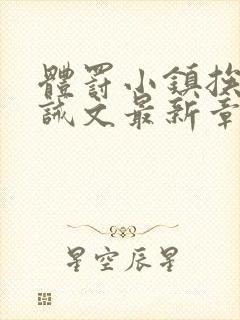 體罰小鎮挨
誡文最新章
星空辰星